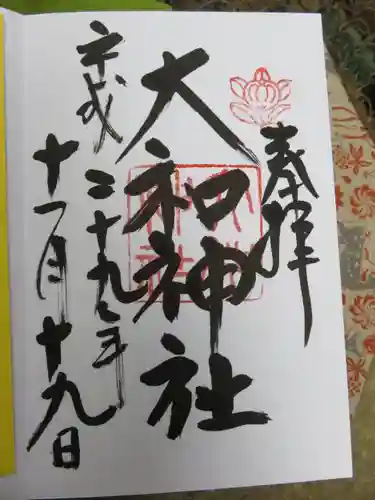 奉拝
大和神社
平成二十九年
十一月十九日